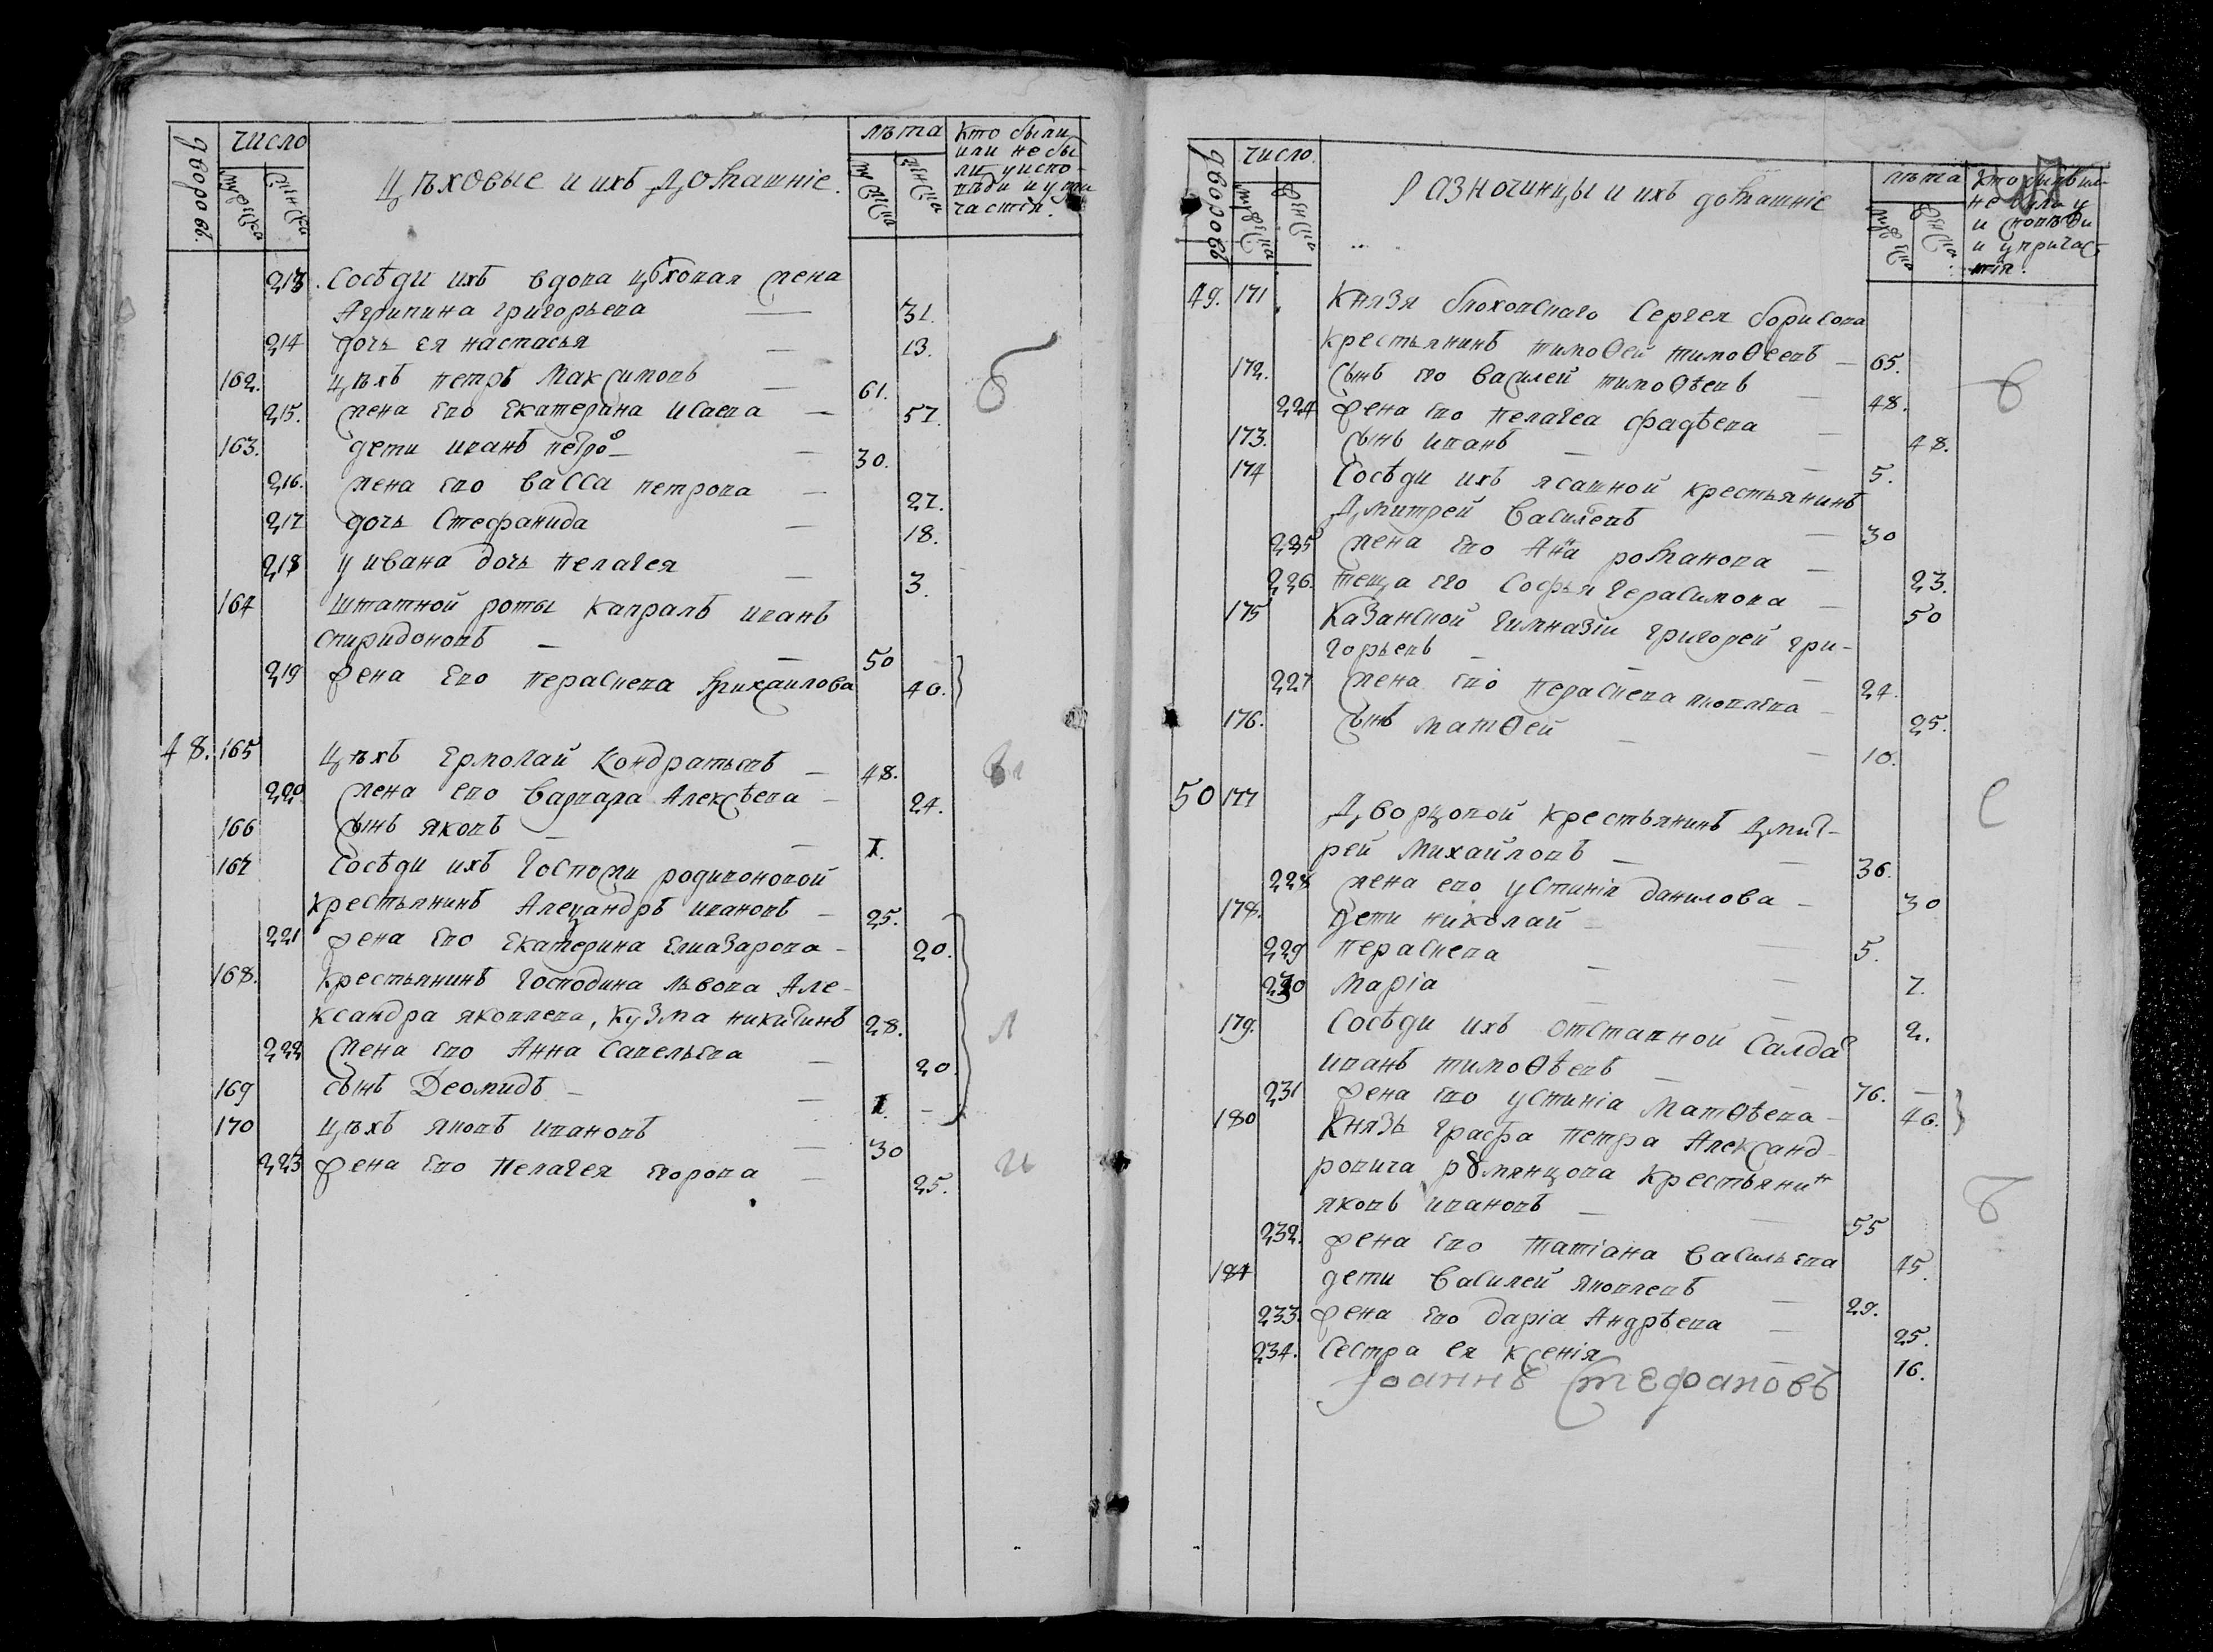 дворовъ
число
мужеска
женска
Цѣховые и ихъ домашніе.
лѣта
мужеска
женска
кто были
или не бы
ли у испо-
вѣди и у при
частія.
213. Сосѣди ихъ вдова цѣховая жена
Агрипина григорьева — 31.
214 дочь ея настасья — 13.
162. цѣхъ петръ Максимовъ — 61.
215. жена его Екатерина Исаева — 57.
163. дети иванъ петро — 30.
216. жена его васса петрова — 27.
217 дочь Стефанида — 18.
218 у ивана дочь пелагея — 3.
164 штатной роты капралъ иванъ
спиридоновъ — 50
219 жена его параскева михаилова 40.
48. 165 цѣхъ Ермолай кондратьевъ — 48.
220 жена его варвара Алексѣева — 24.
166 сынъ яковъ — 1.
167 Сосѣди ихъ Госпожи родионовой
крестьянинъ Алеџандръ ивановъ — 25.
221 жена его Екатерина Елиазарова — 20.
168. крестьянинъ Господина львова Але-
ксандра яковлева, кузма никитинъ 28.
222 жена его Анна Савельева — 20.
169 сынъ Деомидъ — 1.
170 цѣхъ яковъ ивановъ — 30
223 жена его пелагея егорова — 25.
дворовъ
число.
мужеска
женска
Разночинцы и ихъ домашніе
лѣта
мужеска
женска
не были у
исповѣди
и у причас-
тія.
49. 171 Князя Сергея борисова
крестьянинъ тимоѳей тимоѳеевъ — 65.
172. сынъ его василей тимоѳѣевъ — 48.
224 жена его пелагеа фадѣева — 48.
173. сынъ иванъ — 5.
174 Сосѣди ихъ ясашной крестьянинъ
Дмитрей василевъ — 30
225 жена его Анна романова — 23.
226. теща его Софья герасимова — 50
175 Казанской гимназіи григорей гри-
горьевъ — 24.
227 жена его параскева яковлева — 25.
176. сынъ матѳей — 10.
50 177 Дворцовой крестьянинъ дмит-
рей михайловъ — 36.
228 жена его устинія данилова — 30
178. дети николай — 5.
229 параскева — 7.
230 марія — 2.
179. Сосѣди ихъ отставной салда
иванъ тимоѳѣевъ — 76.
231 жена его устиніа матѳѣева — 46.
180 Князь графа петра Александ-
ровича румянцова крестьянин
яковъ ивановъ — 55
232. жена его татіана васильева 45.
181 дети василей яковлевъ — 29.
233. жена его даріа Андрѣева — 25.
234. Сестра ея ксенія — 16.
Іоаннъ Стефановъ